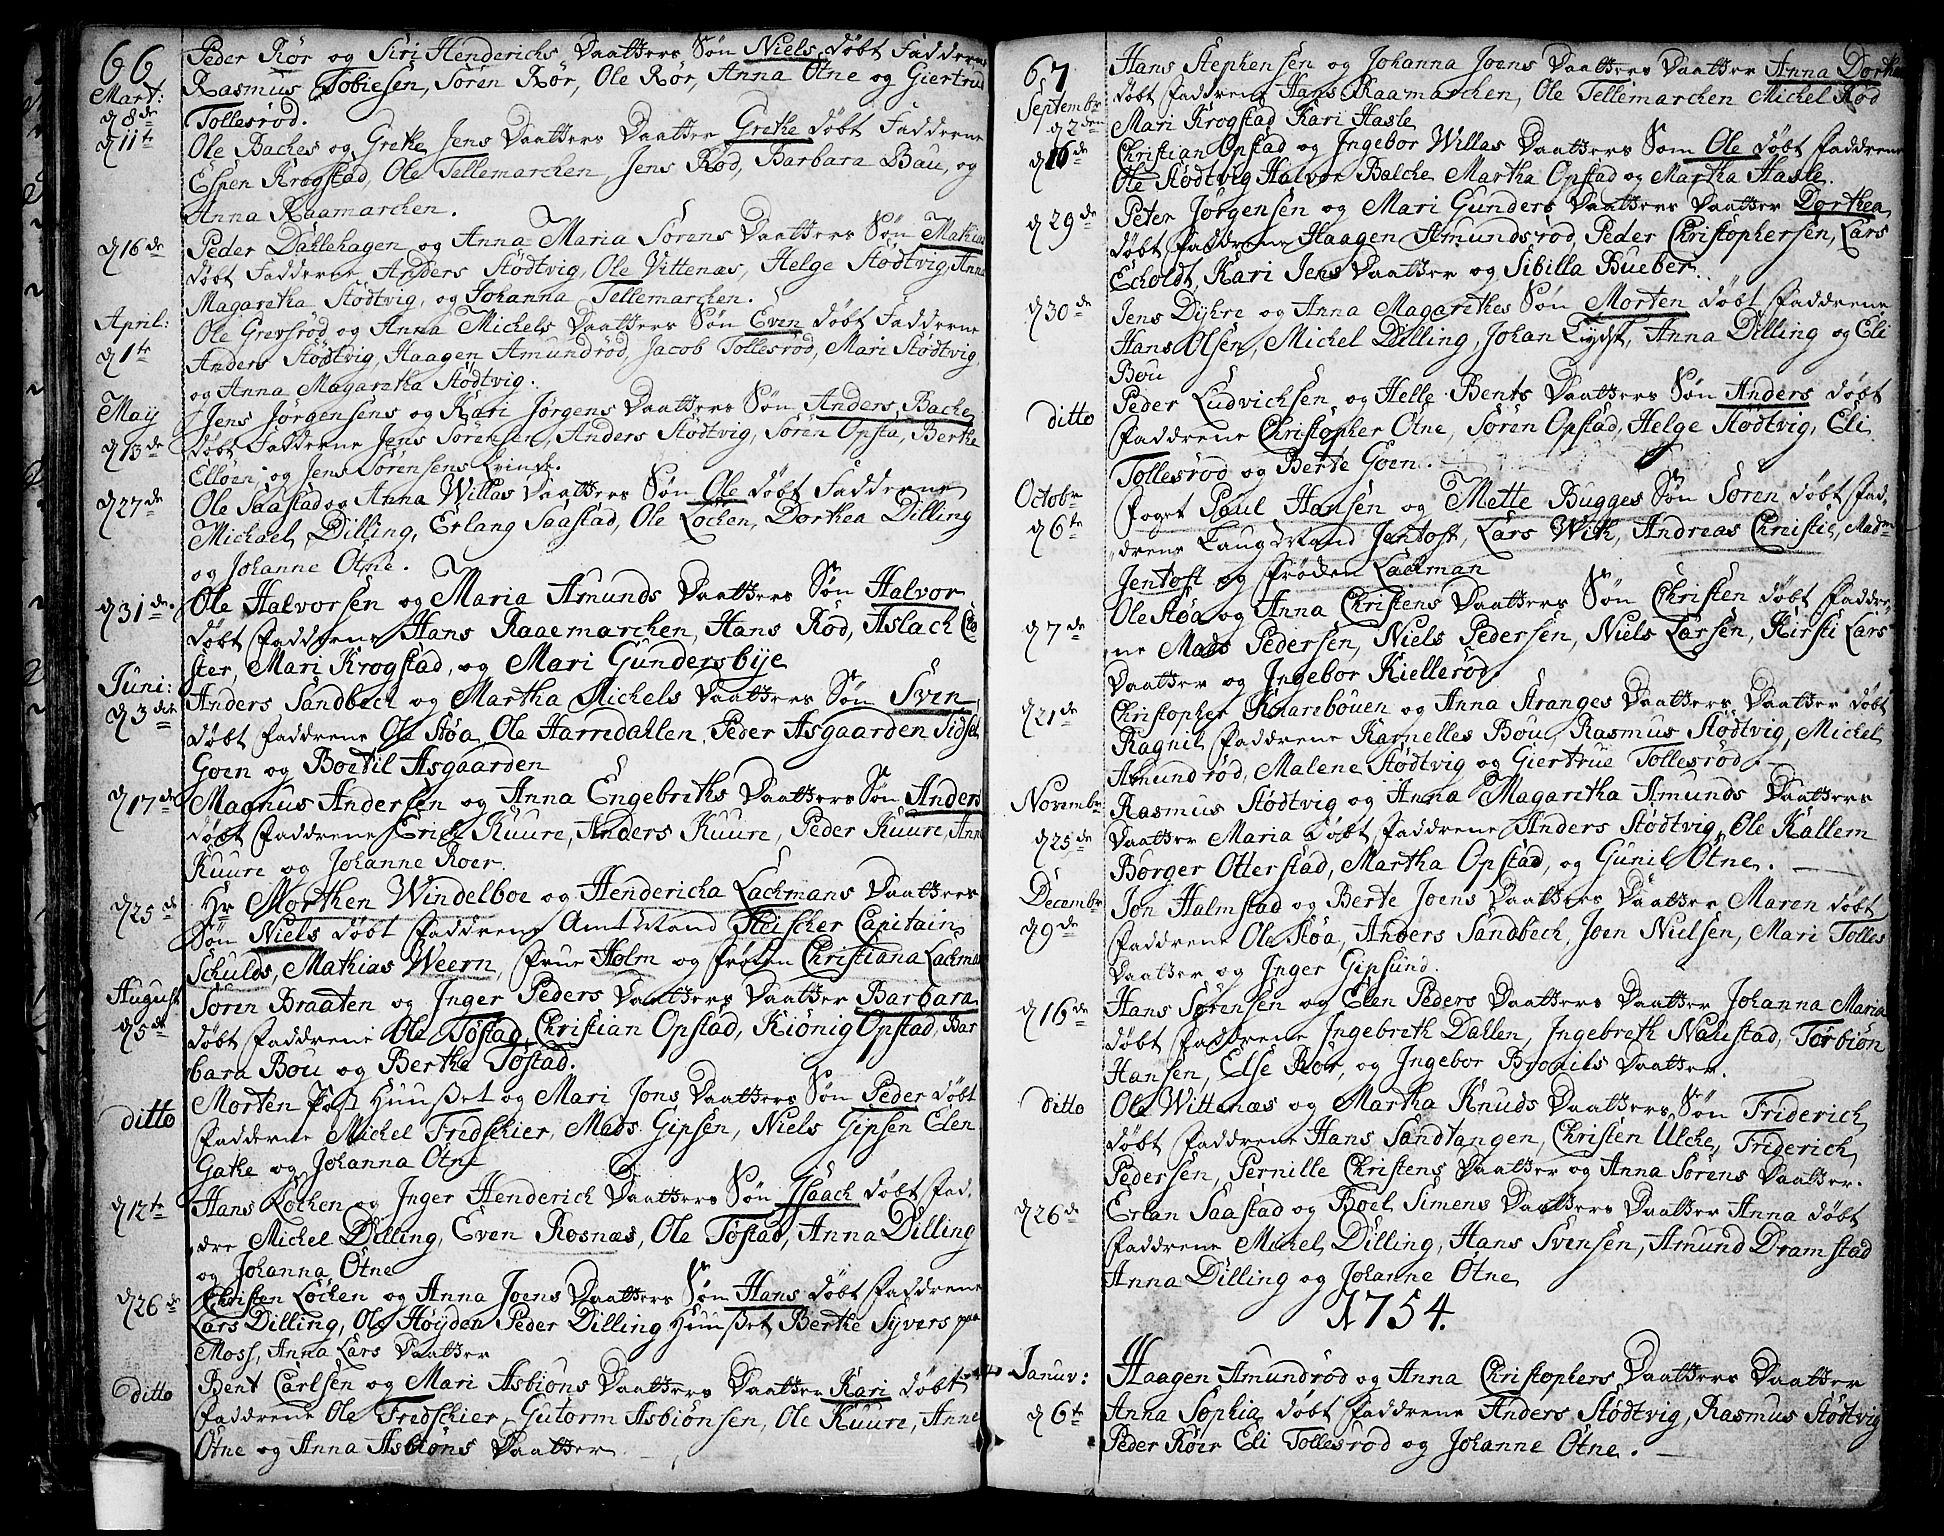 66
Peder Rør og Siri Henderichs Daatters Søn Niels døbt Faddere
Mart:
d 8de
Rasmus Tobiesen, Søren Rør, Ole Rør, Anna Otne og Giertrud
Tollesrød.
d 11te
Ole Baches og Grethe Jens Daatters Daatter Grethe døbt Fadderne
Espen Krogstad, Ole Tellemarchen, Jens Rød, Barbara Bau, og
Anna Raamarchen.
d 16de
Peder Dahlehagen og Anna Maria Sørens Daatters Søn Mathias
døbt Fadderne, Anders Stødtvig, Ole Vittenæs, Helge Stødtvig, Anna
Magaretha Stødtvig, og Johanna Tellemarchen.
April:
d 1te
Ole Grevsrød og Anna Michels Daatters Søn Even døbt Fadderne
Anders Stødtvig, Haagen Amundrød, Jacob Tollesrød, Mari Stødtvig,
og Anna Magaretha Stødtvig.
May
d 13de
Jens Jørgensens og Kari Jørgens Daatters Søn Anders Bache
døbt Fadderne Jens Sørensen, Anders Stødtvig, Søren Opsta, Berthe
Elløen, og Jens Sørensens Qvinde.
d 27de
Ole Saastad og Anna Willas Daatters Søn Ole døbt Fadderne
Michael Dilling, Erlang Saastad, Ole Løchen, Dorthea Dilling
og Johanne Otne.
d 31de
Ole Halvorsen og Maria Amunds Daatters Søn Halvor
døbt Faddrene Hans Raaemarchen, Hans Rød, Aslach
ster, Mari Krogstad, og Mari Gundersbye
Juni:
d 3die
Anders Sandbech og Martha Michels Daatters Søn Sven
døbt Faddrene Ole Støa, Ole Harredahlen, Peder Asgaarden Sidsel
Goen og Boetil Asgaarden
d 17de
Magnus Andersen og Anna Engebreths Daatters Søn Anders
døbt Faddrene Erich Kuure, Anders Kuure, Peder Kuure, Anna
Kuure og Johanne Roer.
d 25de
Hr Morthen Windelboe og Hendericha Lachmans Daatters
Søn Niels døbt Faddrene Amtmand Fleischer Capitain
Schulds, Mathias Weern, Frue Holm og Frøken Christiana Lachman
August
d 5te
Søren Braaten og Inger Peders Daatters Daatter Barbara
døbt Faddrene Ole Tøstad, Christian Opstad, Kiønig Opstad, Bar
bara Bou og Berthe Tøstad.
ditto
Morten Past Huuset og Mari Jons Daatters Søn Peder døbt
Fadderne Michel Fredschier, Mads Gipsen, Niels Gipsen Elen
Gathe og Johanna Otne
d 12te
Hans Løchen og Inger Henderich Daatters Søn Isaach døbt Fad,
dre Michel Dilling, Even Rosnæs, Ole Tøstad, Anna Dilling
og Johanna Otne
d 26de
Christen Løchen og Anna Joens Daatters Søn Hans døbt Faddrene
Lars Dilling, Ole Høyden Peder Dilling Huuset Berthe Syvers paa
Moss, Anna Lars Daatter
ditto
Bent Carlsen og Mari Asbiøns Daatters Daatter Kari døbt
Faddrene Ole Fredschier, Gutorm Asbiønsen, Ole Kuure, Anne
Otne og Anna Asbiøns Daatter
67
Hans Stephensen og Johanna Joens Daatters Daatter Anna Dorthe
Septembr
d 2den
døbt Faddrene Hans Raamarchen, Ole Tellemarchen Michel Rød
Mari Krogstad Kari Hasle
d 16de
Christian Opstad og Ingebor Willas Daatters Søn Ole døbt Faddrene
Ole Stødtvig Halvor Balche Martha Opstad og Martha Hasle.
d 29de
Peter Jørgensen og Mari Gunders Daatters Daatter Dorthea
døbt Faddrene Haagen Amundsrød, Peder Christophersen, Lars
Echoldt, Kari Jens Daatter og Sibilla Bueber.
d 30de
Jens Dyhre og Anna Magarethes Søn Morten døbt Faddrene
Hans Olsen, Michel Dilling, Johan Eydst, Anna Dilling og Eli
Bou
ditto
Peder Ludvichsen og Helle Bents Daatters Søn Anders døbt
Faddrene Christopher Otne, Søren Opstad, Helge Stødtvig, Eli
Tollesrød og Berte Goen.
Octobr
d 6te
Foget Paul Hansen og Mette Bugges Søn Søren døbt Fad,
drene Laugmand Jentoft, Lars With, Andreas Christie, Madm
Jentoft og Frøden Lachman
d 7de
Ole Støa og Anna Christens Daatters Søn Christen døbt Faddre,
ne Mads Pedersen, Niels Pedersen, Niels Larsen, Kirsti Lars
Daatter og Ingebor Kiellerød.
d 21de
Christopher Knarebouen og Anna Aranges Daatters Daatter døbt
Ragnil Faddrene Karnelles Bou, Rasmus Stødtvig, Michel
Amundrød, Malene Stødtvig og Giertrue Tollesrød.
Novembr
d 25de
Rasmus Stødtvig og Anna Magaretha Amunds Daatters
Daatter Maria døbt Faddrene Anders Stødtvig, Ole Kallem
Børger Otterstad, Martha Opstad, og Gunil Otne.
Decembr
d 9de
Jon Halmstad og Berte Joens Daatters Daatter Maren døbt
Faddrene Ole Støa, Anders Sandbech, Joen Nielsen, Mari Tolles
Daatter og Inger Gipsund.
d 16de
Hans Sørensen og Elen Peders Daatters Daatter Johanna Maria
døbt Faddrene Ingebreth Dahlen, Ingebreth Nauestad, Torbiøn
Hansen, Else Rør, og Ingebor Bronils Daatter.
ditto
Ole Wittenæs og Martha Knuds Daatters Søn Friderich
døbt Faddrene Hans Sandtangen, Christen Ulche, Friderich
Pedersen, Pernille Christens Daatter og Anna Sørens Daatter.
d 26de
Erlan Saastad og Boel Simens Daatters Daatter Anna døbt
Faddrene Michel Dilling, Hans Svensen, Amund Dramstad
Anna Dilling og Johanne Otne
1754.
Januv:
d 6te
Haagen Amundrød og Anna Christophers Daatters Daatter
Anna Sophia døbt Faddrene Anders Stødtvig, Rasmus Stødtvig
Peder Røer Eli Tollesrød og Johanne Otne.